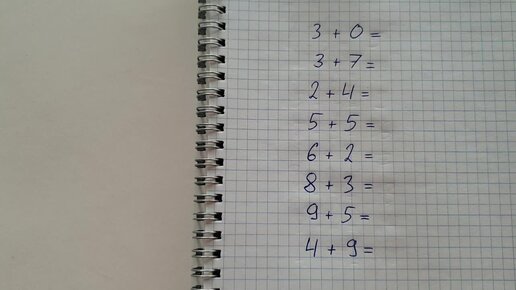 3 + 0 =
3 + 7 =
2 + 4 =
5 + 5 =
6 + 2 =
8 + 3 =
9 + 5 =
4 + 9 =